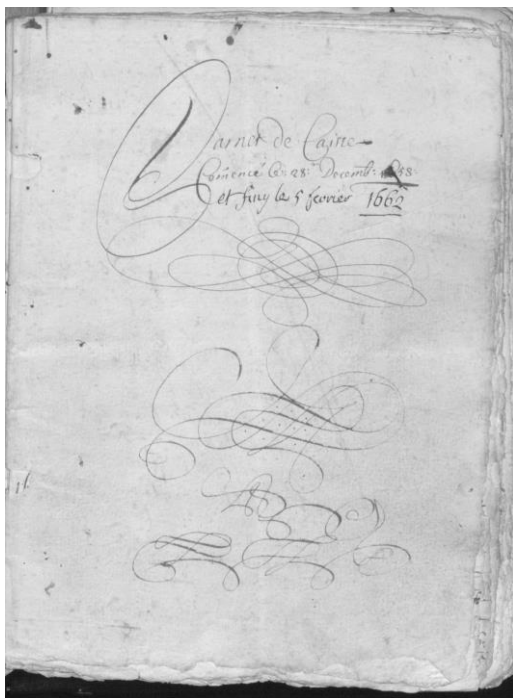 Carnet de Caisse
Comencé le 28: Decemb: 1658
et finy le 5 fevrier 1662